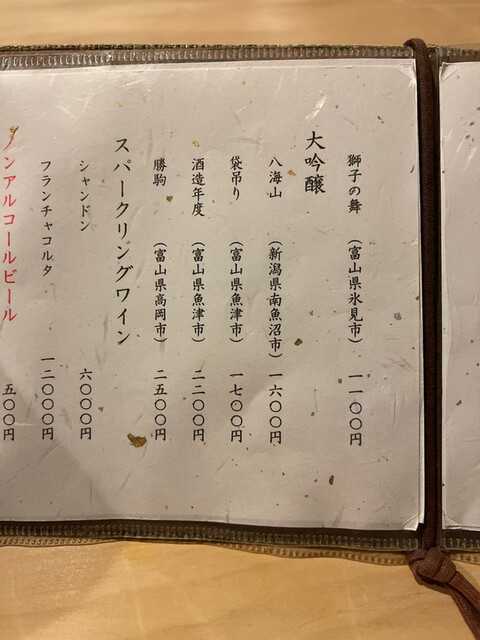 獅子の舞 (富山県氷見市) 一一〇〇円
大吟醸
八海山 (新潟県南魚沼市) 一六〇〇円
袋吊り (富山県魚津市) 一七〇〇円
酒造年度 (富山県魚津市) 二二〇〇円
勝駒 (富山県高岡市) 二五〇〇円
スパークリングワイン
シャンドン 六〇〇〇円
フランチャコルタ 一二〇〇〇円
ノンアルコールビール 五〇〇円